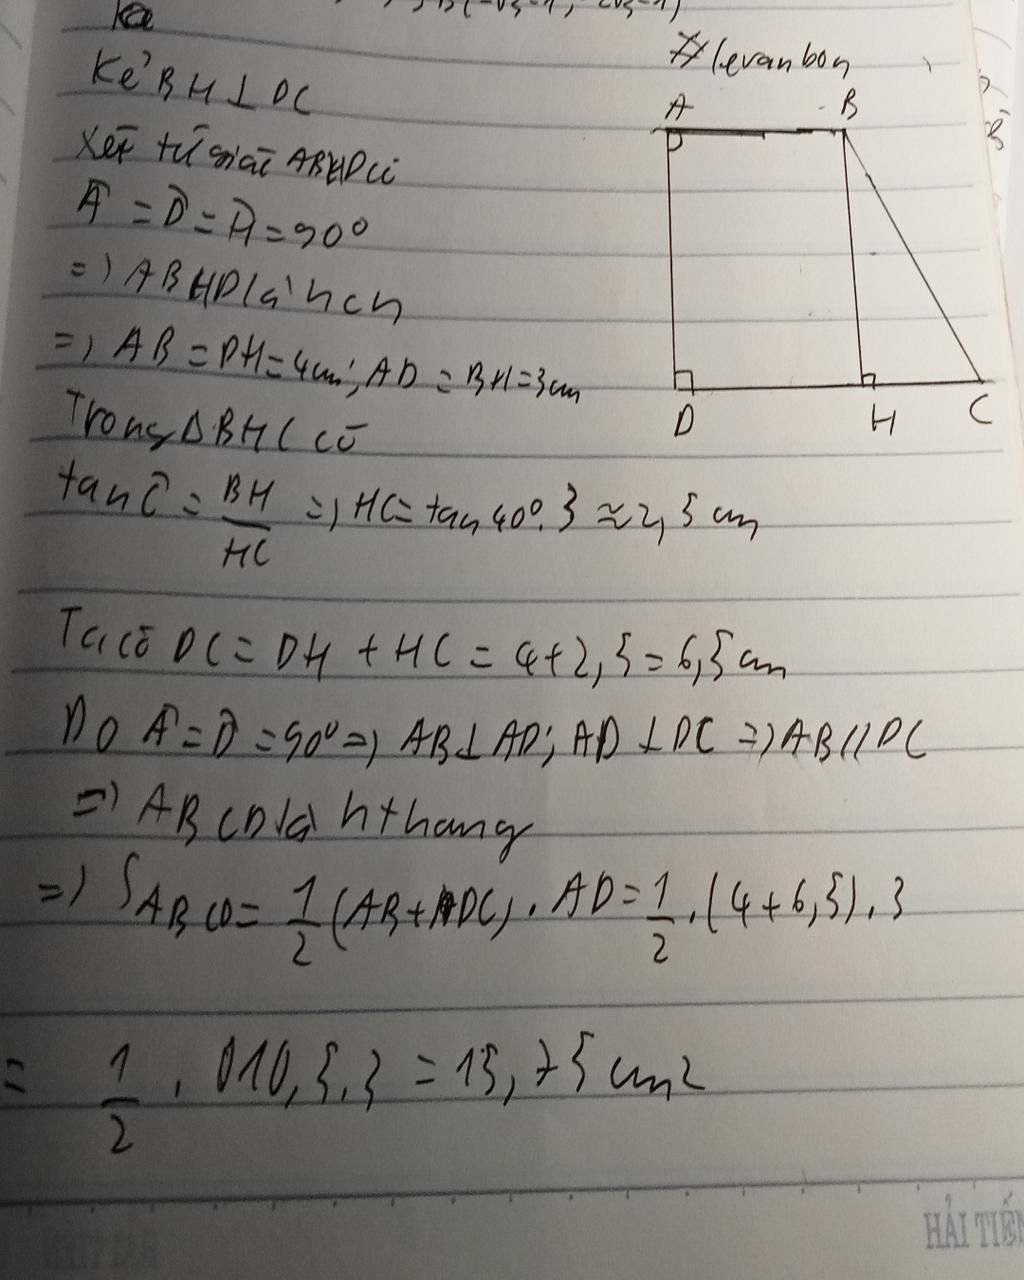 #levanbon
A B
D H C
Kẻ BH ⊥ DC
Xét tứ giác ABHD có
Â = D̂ = Ĥ = 90°
=> ABHD là hcn
=> AB = DH = 4cm; AD = BH = 3cm
Trong Δ BHC có
tan Ĉ = BH/HC => HC = tan 40°. 3 ≈ 2,5 cm
Ta có DC = DH + HC = 4+2,5 = 6,5 cm
Do Â = D̂ = 90° => AB ⊥ AD; AD ⊥ DC => AB // DC
=> ABCD là hthang
=> S ABCD = 1/2 (AB + DC). AD = 1/2 . (4 + 6,5) . 3
= 1/2 . 10,5.3 = 15,75 cm²
HẢI TIẾN